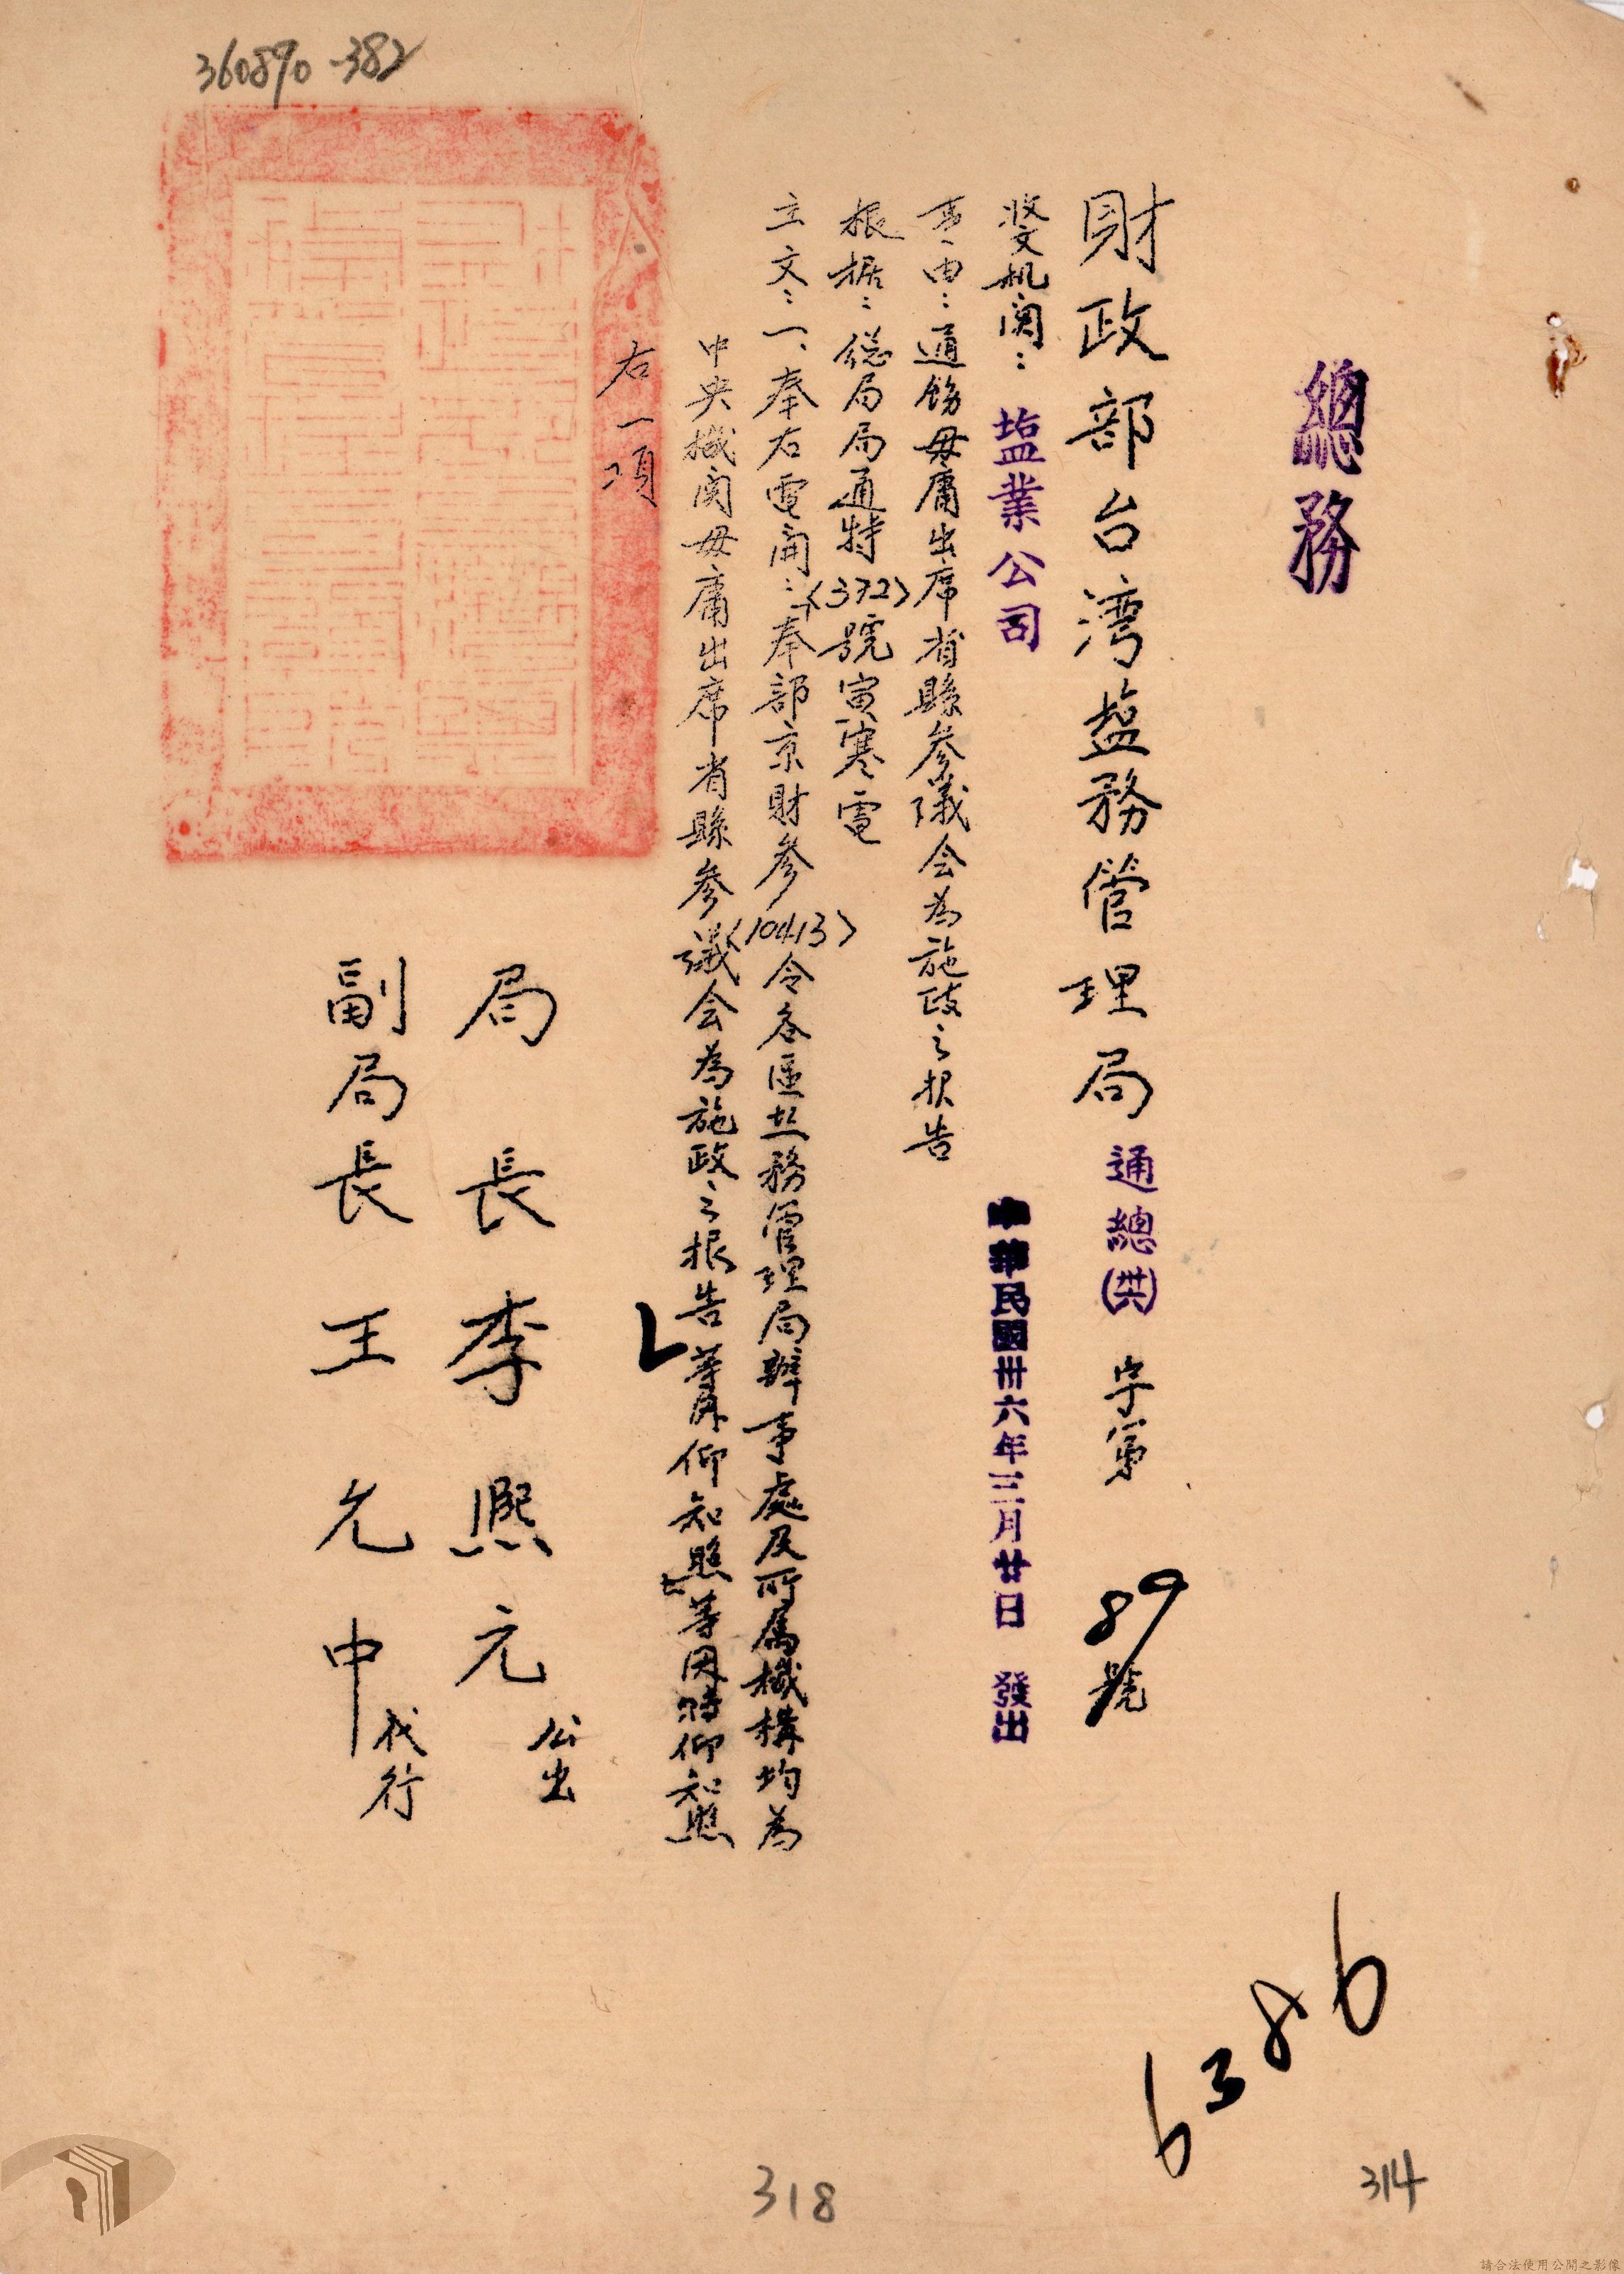 360890-382
總務
財政部台湾盐務管理局通總(卅六)字第89號
收文机関：塩業公司
中華民國卅六年三月廿日 發出
事由：通飭毋庸出席省縣参議会為施政之报告
根据：總局局通特〈372〉號寅寒電
主文：一、奉右電開：「奉部京財参〈10413〉令各區盐務管理局辦事處及所属機構均為
中央機関毋庸出席省縣参議会為施政之报告等因仰知照」等因特仰知照
右一項
局長李熙元 公出
副局長王允中 代行
6386
318
314
請合法使用公開之影像